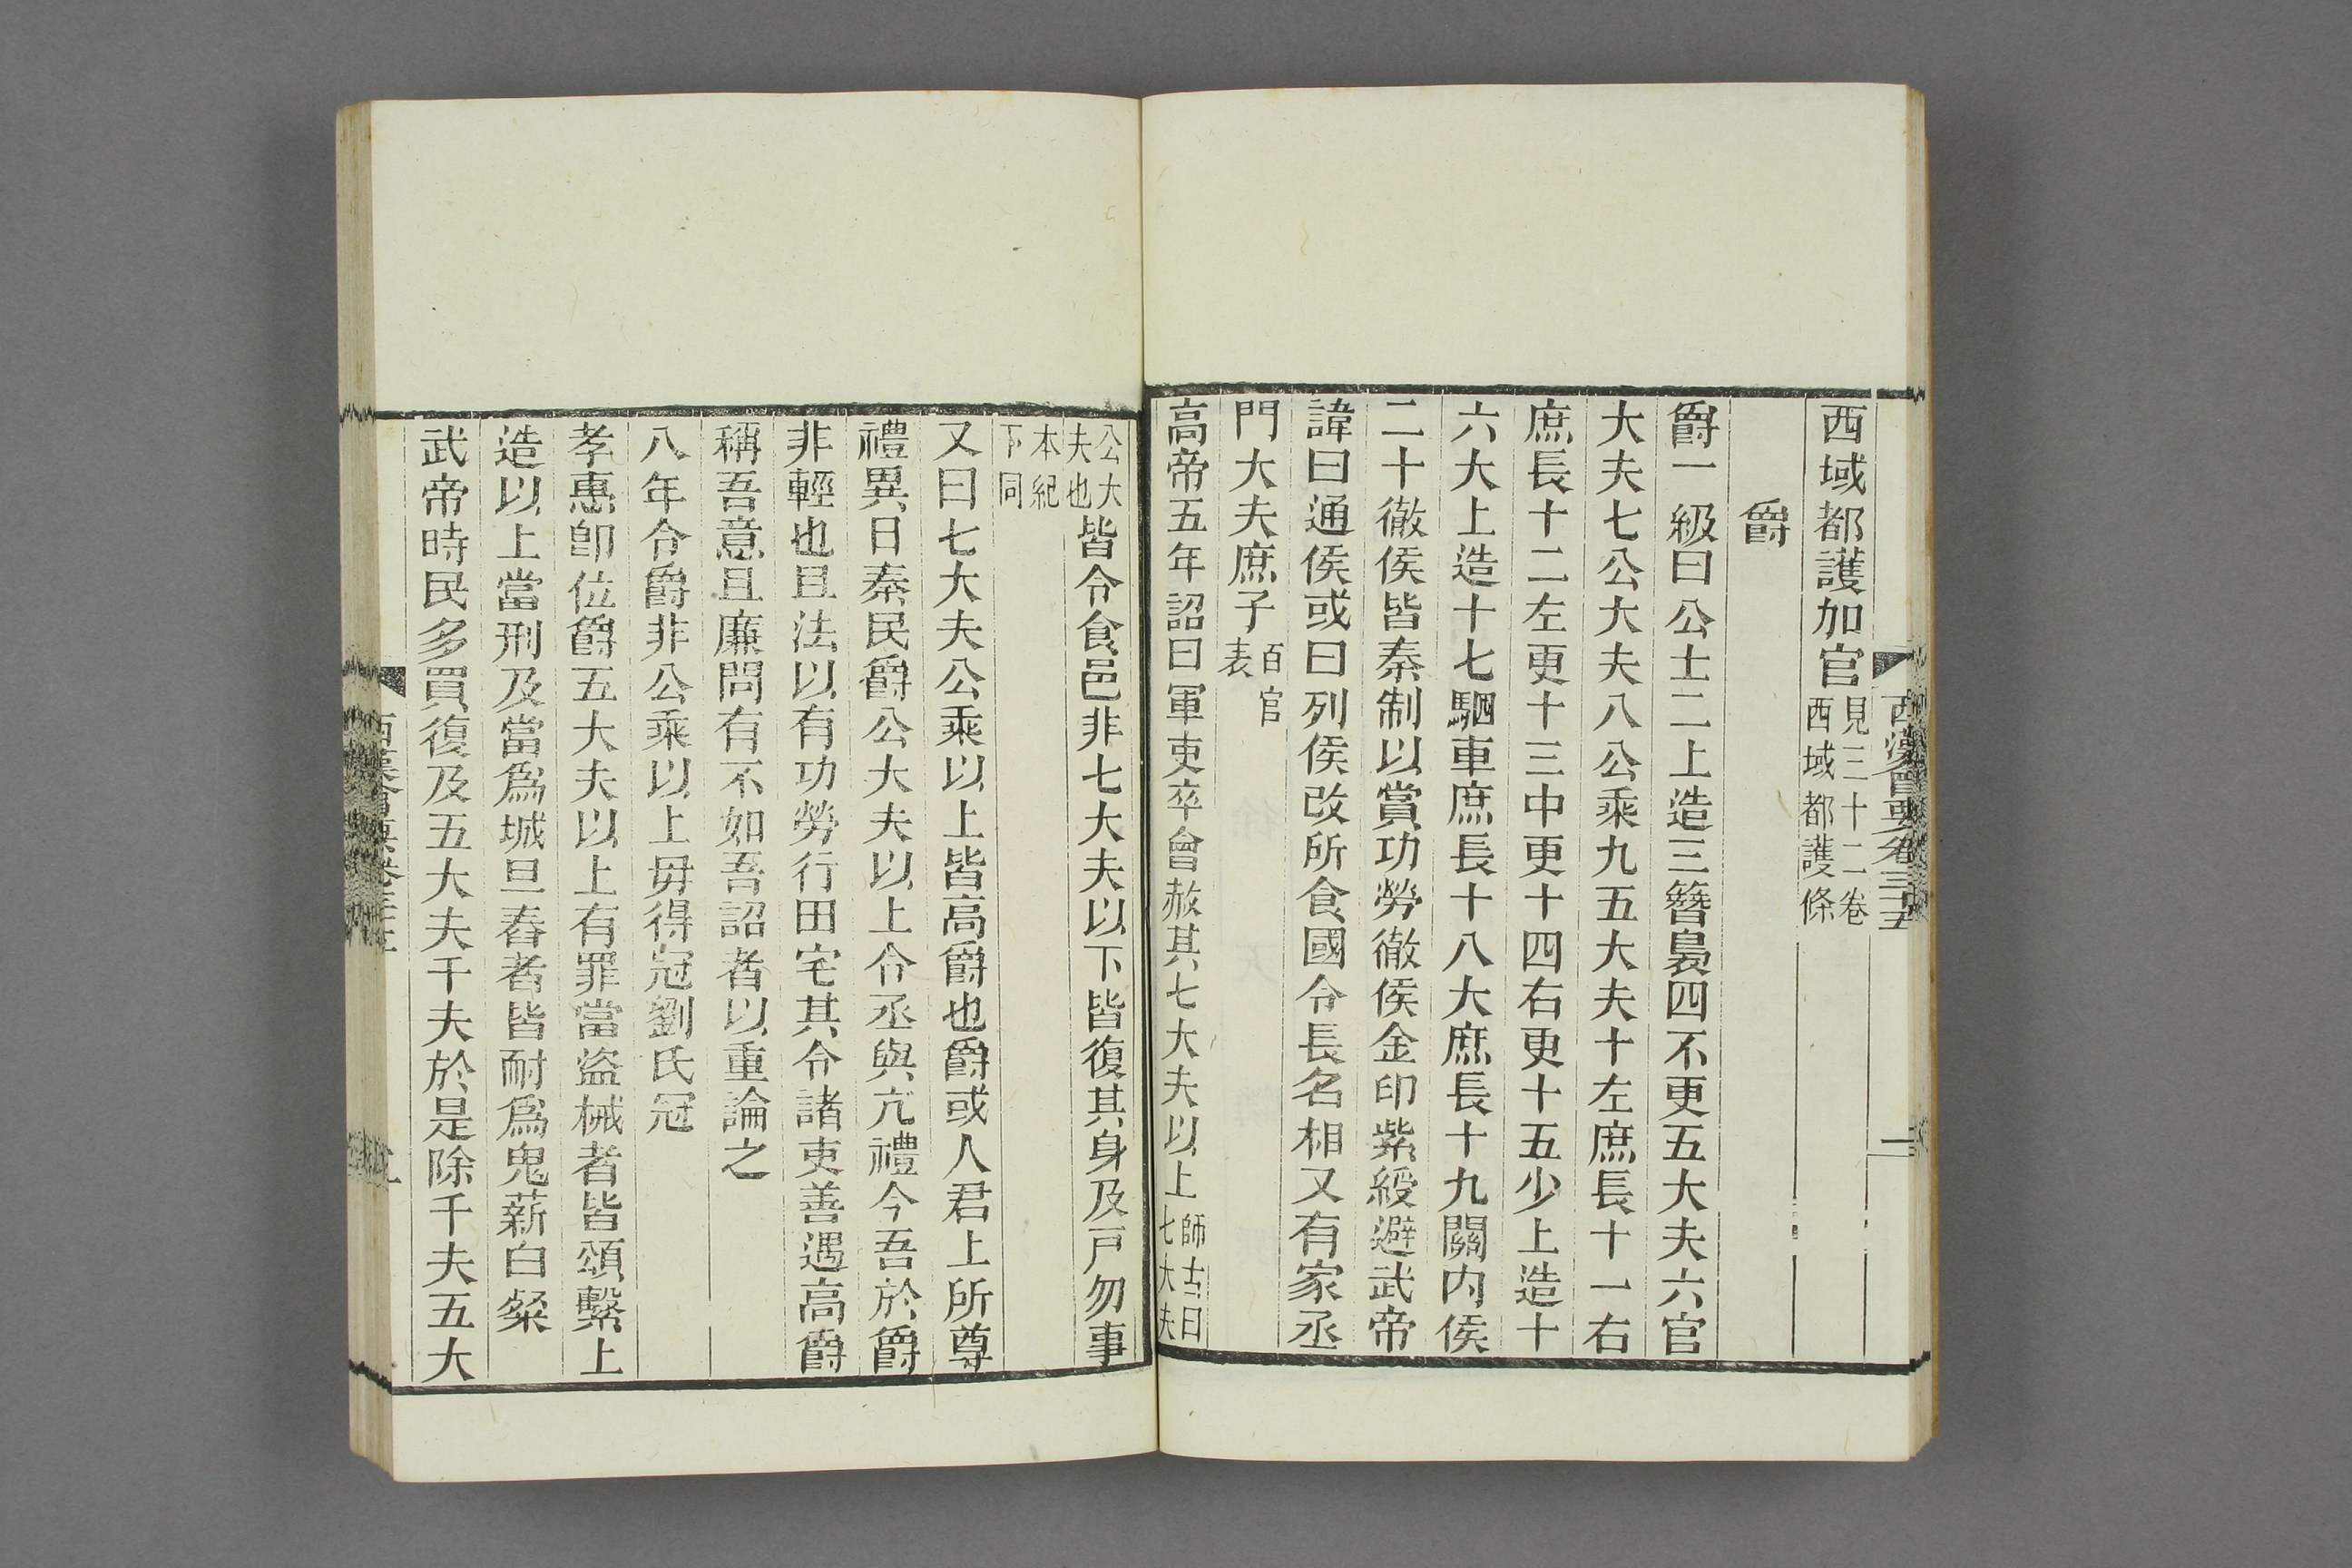 西漢會要卷三十五
西域都護加官見三十二卷西域都護條
爵
爵一級曰公士二上造三簪裊四不更五大夫六官
大夫七公大夫八公乘九五大夫十左庶長十一右
庶長十二左更十三中更十四右更十五少上造十
六大上造十七駟車庶長十八大庶長十九關內侯
二十徹侯皆秦制以賞功勞徹侯金印紫綬避武帝
諱曰通侯或曰列侯改所食國令長名相又有家丞
門大夫庶子百官表
高帝五年詔曰軍吏卒會赦其七大夫以上師古曰七大夫
公大夫也皆令食邑非七大夫以下皆復其身及戸勿事
本紀下同
又曰七大夫公乘以上皆高爵也爵或人君上所尊
禮異日秦民爵公大夫以上令丞與亢禮今吾於爵
非輕也且法以有功勞行田宅其令諸吏善遇高爵
稱吾意且廉問有不如吾詔者以重論之
八年令爵非公乘以上毋得冠劉氏冠
孝惠卽位爵五大夫以上有罪當盜械者皆頌繫上
造以上當刑及當爲城旦舂者皆耐爲鬼薪白粲
武帝時民多買復及五大夫千夫於是除千夫五大